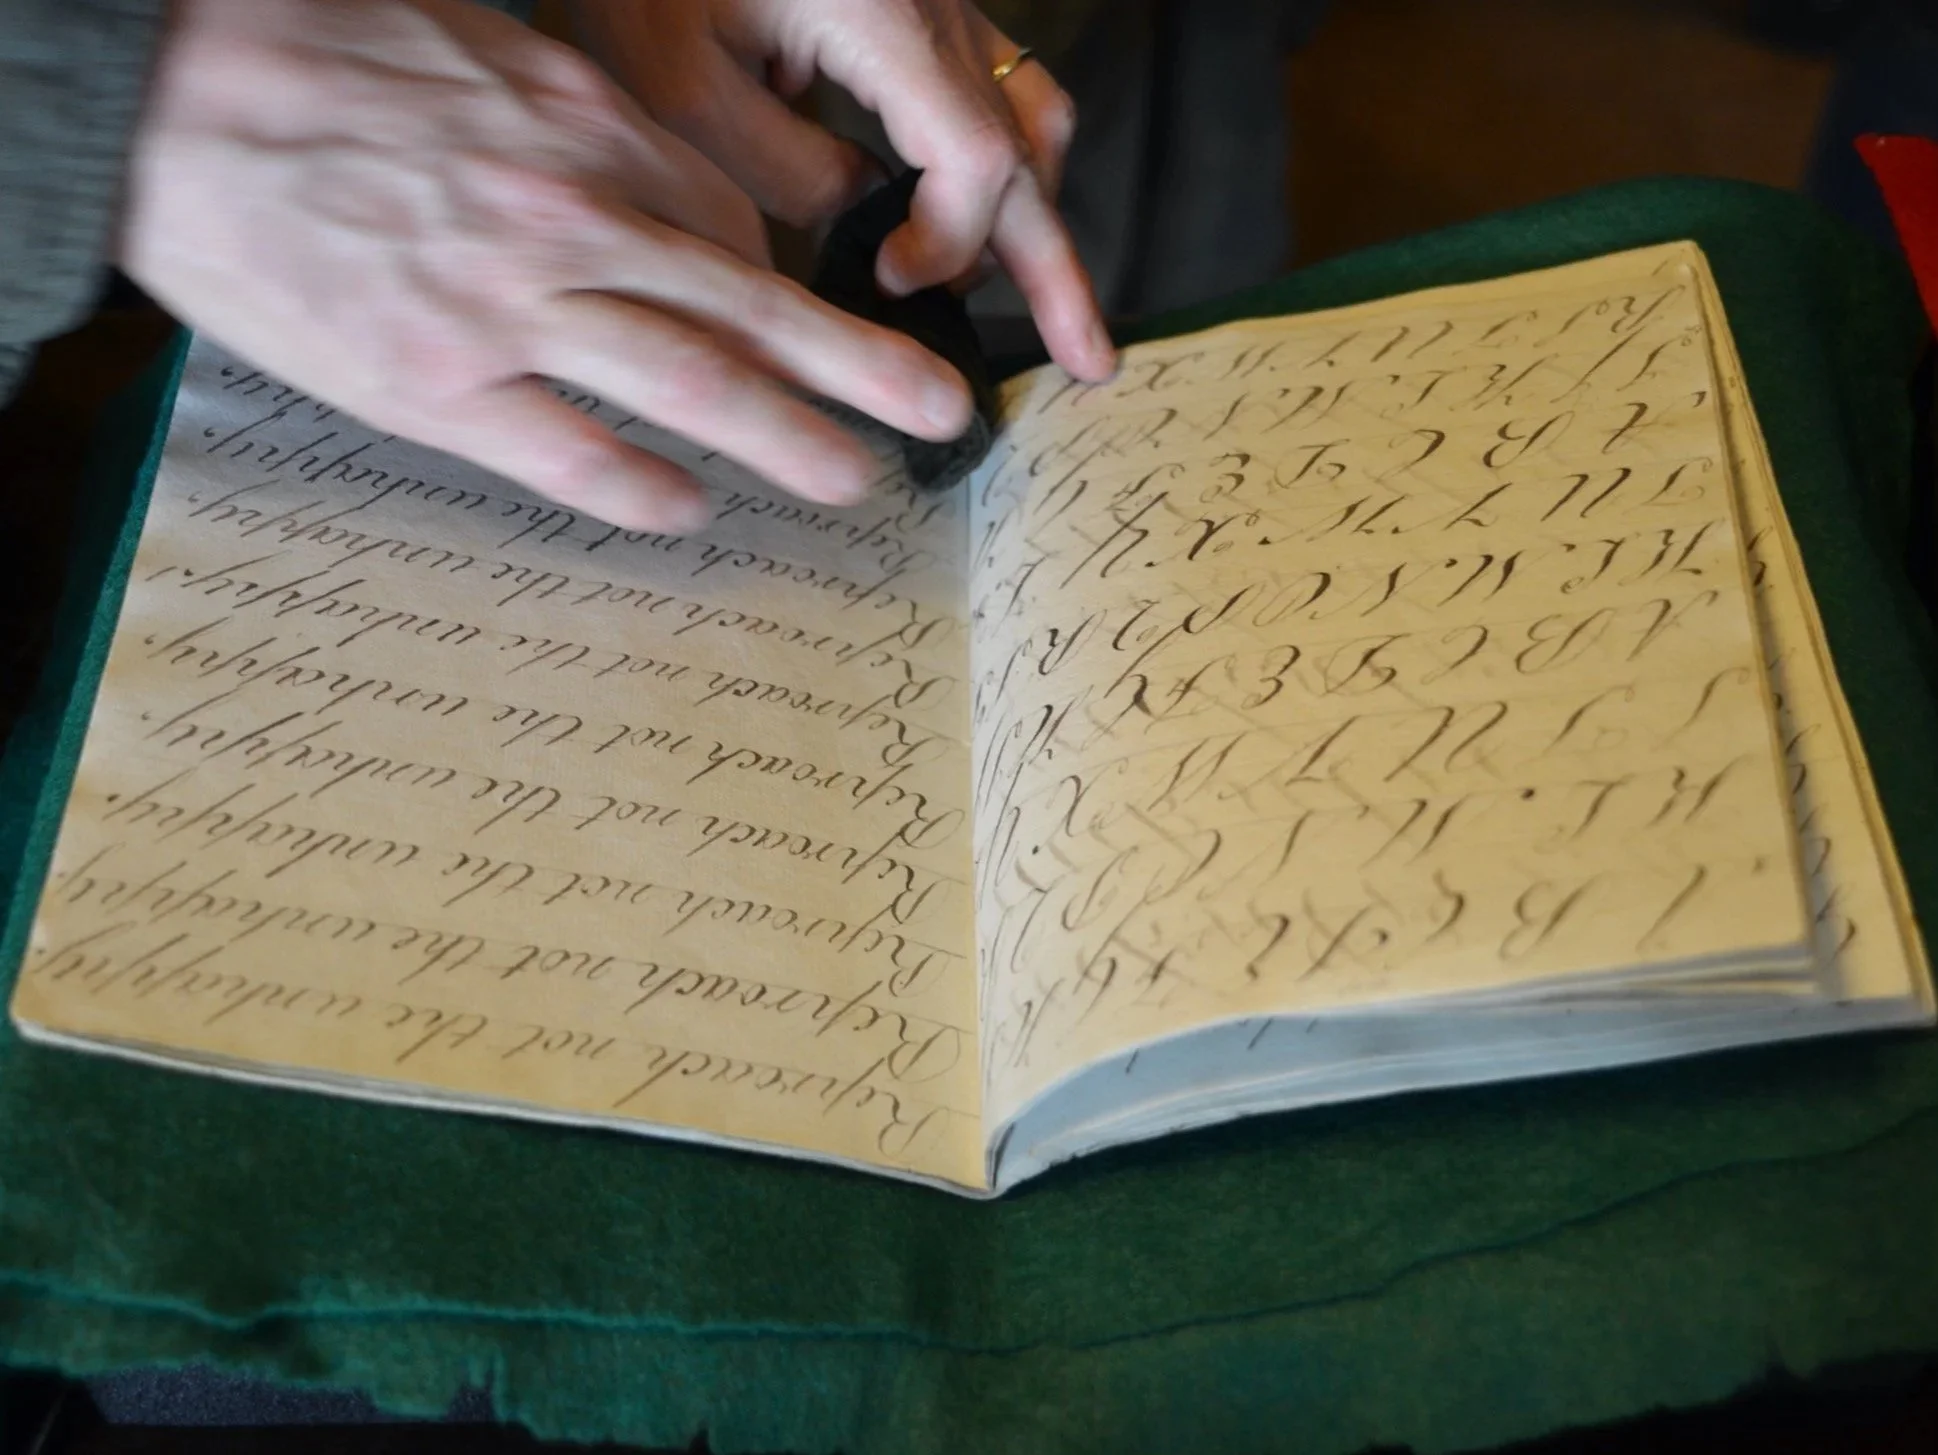 B C D E F G H
K L. M N O P Q
S T U V W X Y
A B C D E F G H
K L M N O P Q R S
T U V W X Y
A B C D E F G
I J K L M N O P Q
R S T U V W X Y
Reproach not the unhappy.
Reproach not the unhappy.
Reproach not the unhappy.
Reproach not the unhappy.
Reproach not the unhappy.
Reproach not the unhappy.
Reproach not the unhappy.
Reproach not the unhappy.
Reproach